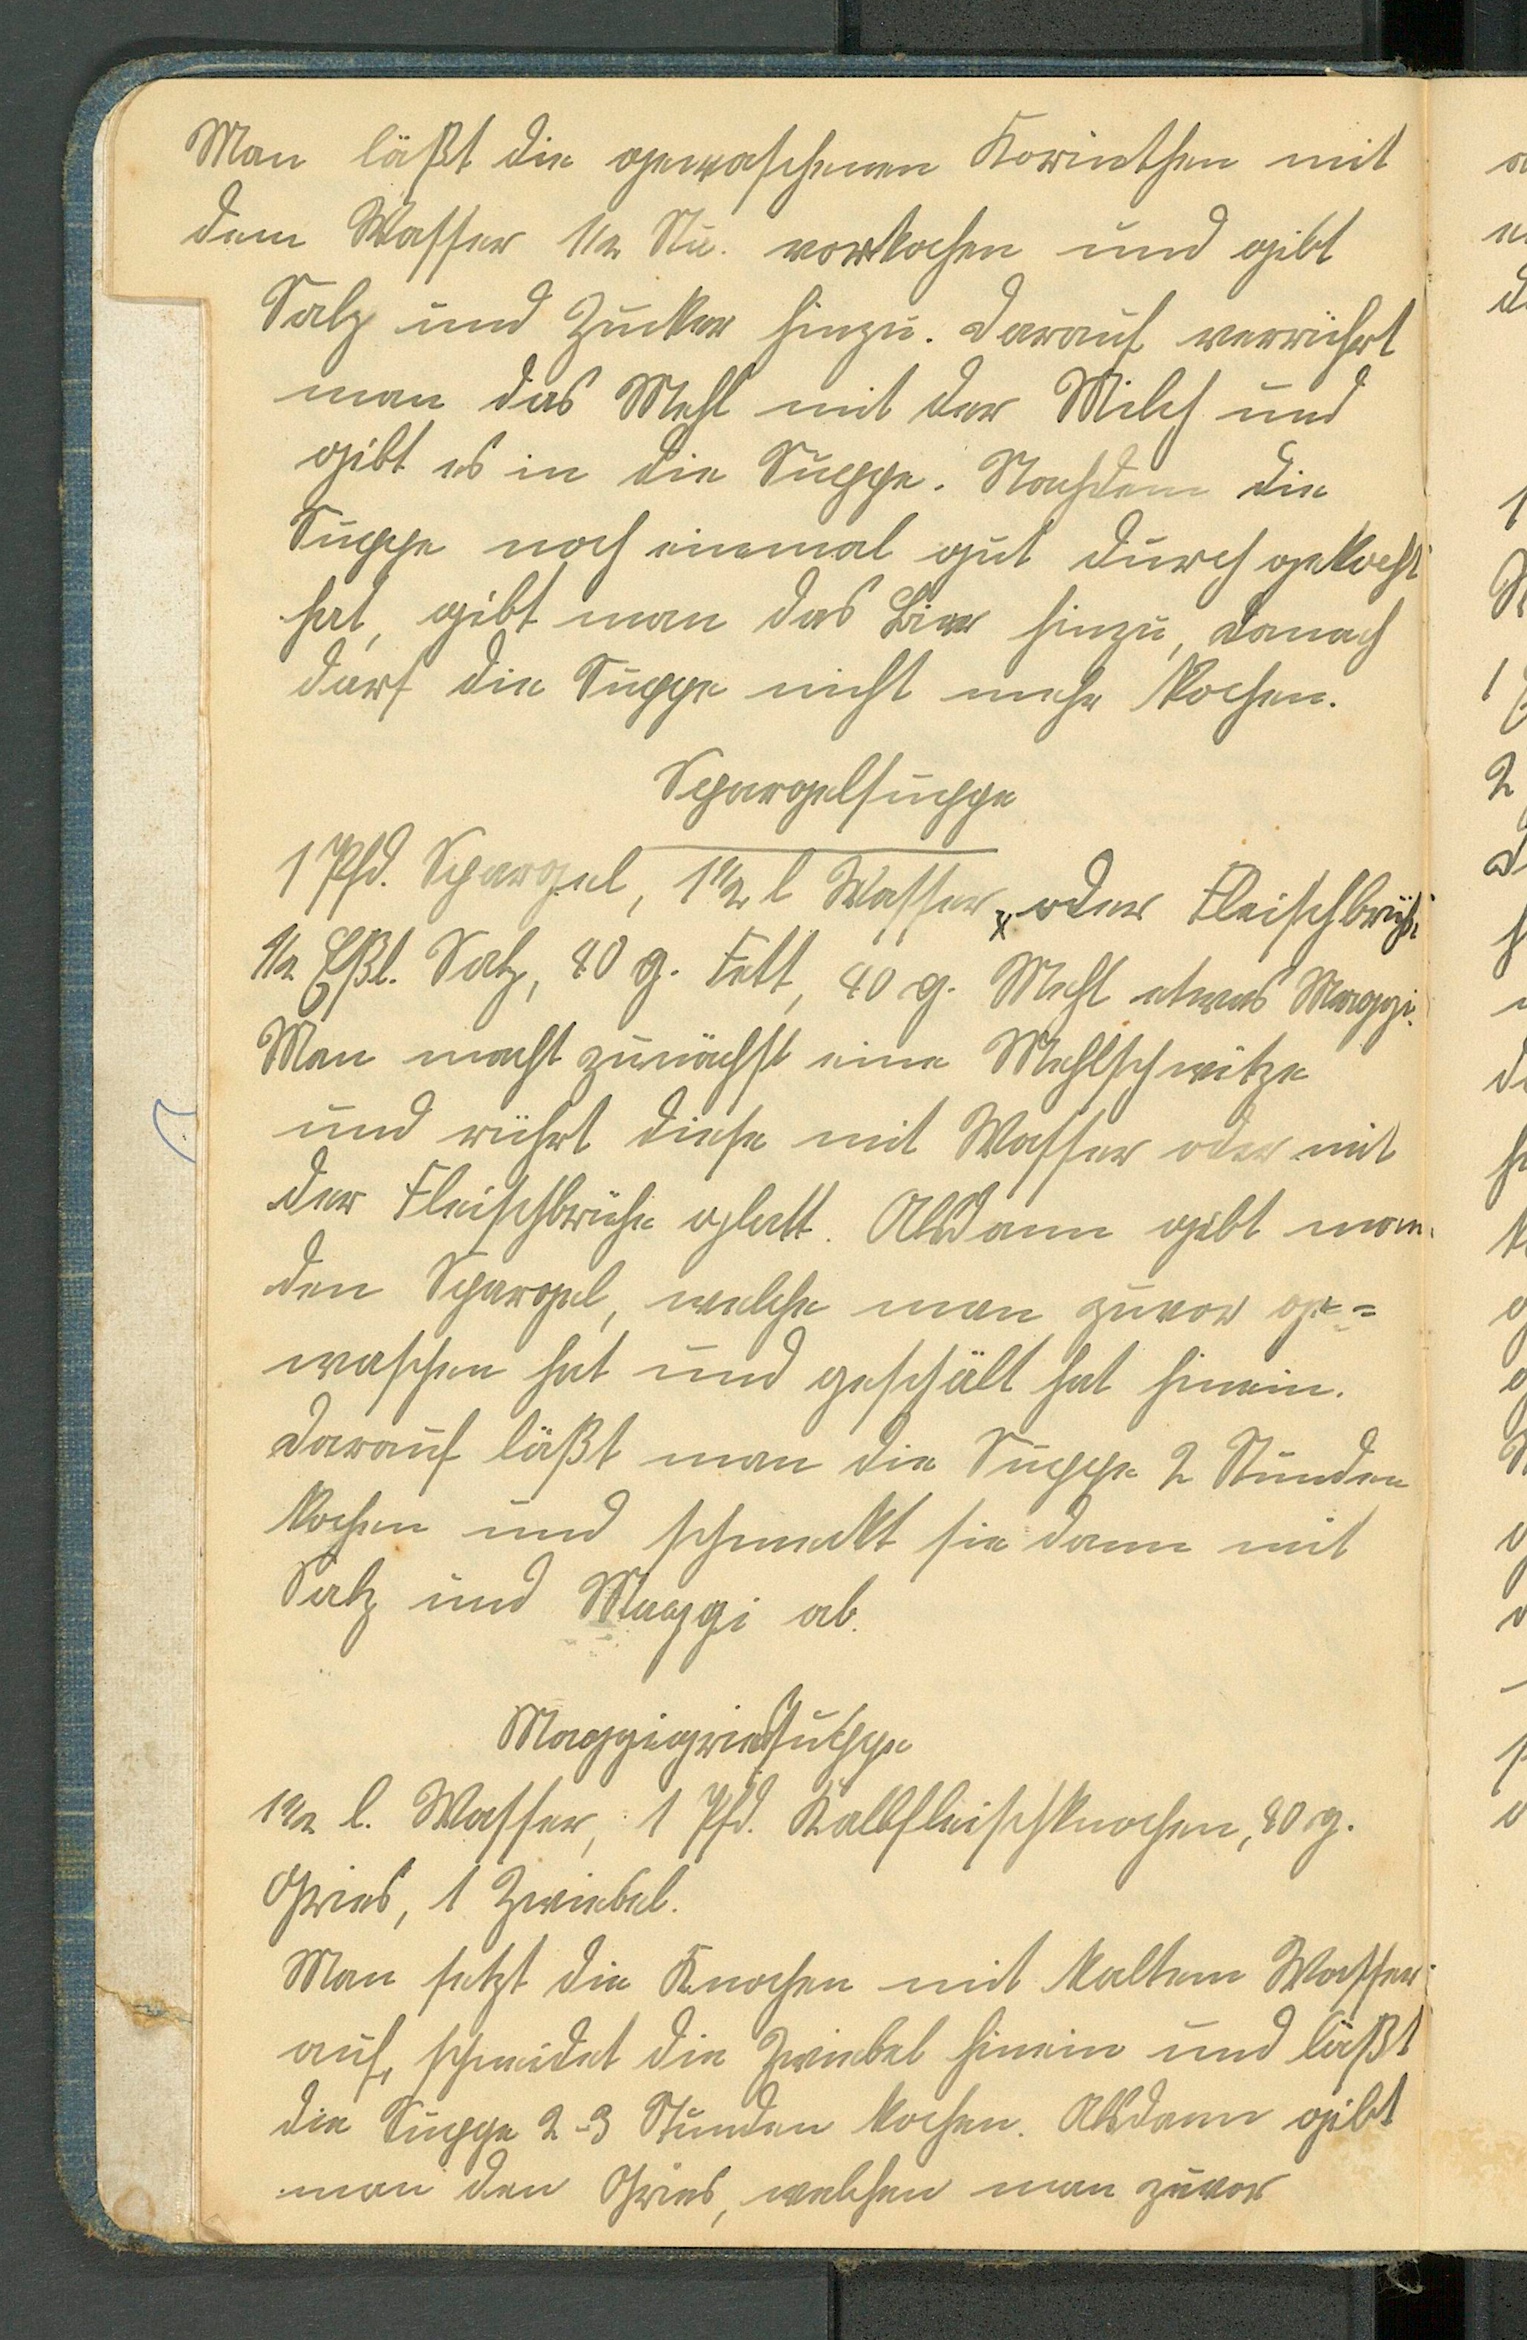 Man läßt die gewaschenen Korinthen mit
dem Wasser 1/2 Stu. vorkochen und gibt
Salz und Zucker hinzu. Darauf verrührt
man das Mehl mit der Milch und
gibt es in die Suppe. Nachdem die
Suppe noch einemal gut durch gekocht
hat, gibt man das Bier hinzu, danach
darf die Suppe nicht mehr kochen.
Spargelsuppe
1 Pfd. Spargel, 1 1/2 l Wasser, oder Fleischbrühe
1/2 Eßl. Salz, 40 g. Fett, 40 g. Mehl etwas Maggi.
Man macht zunächst eine Mehlschwitze
und rührt diese mit Wasser oder mit
der Fleischbrühe glatt. Alsdann gibt man
den Spargel, welche man zuvor ge=
waschen hat und geschält hat hinein.
Darauf läßt man die Suppe 2 Stunden
kochen und schmeckt sie dann mit
Salz und Maggi ab.
Maggigriessuppe
1 1/2 l. Wasser, 1 Pfd. Kalbfleischknochen, 80 g.
Gries, 1 Zwiebel.
Man setzt die Knochen mit kaltem Wasser
auf, schneidet die Zwiebel hinein und läßt
die Suppe 2-3 Stunden kochen. Alsdann gibt
man den Gries, welchen man zuvor